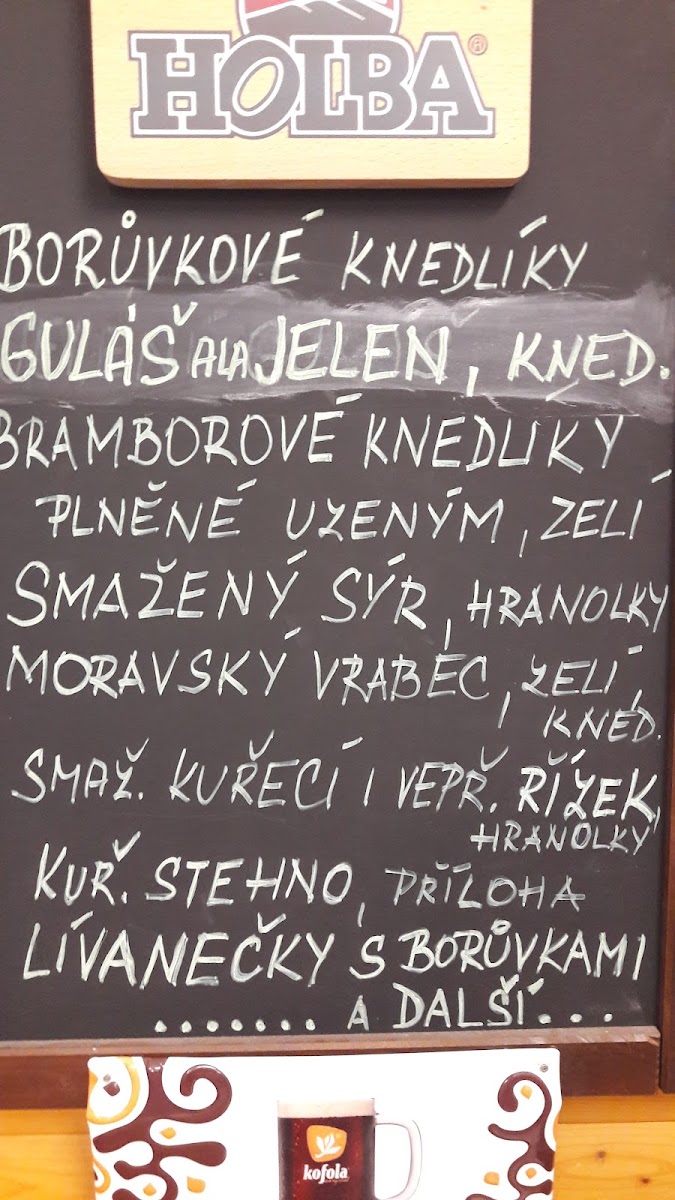 HOLBA®
BORŮVKOVÉ KNEDLÍKY
GULÁŠ ALA JELEN, KNED.
BRAMBOROVÉ KNEDLÍKY
PLNĚNÉ UZENÝM, ZELÍ
SMAŽENÝ SÝR, HRANOLKY
MORAVSKÝ VRABEC, ZELÍ,
KNED.
SMAŽ. KUŘECÍ I VEPŘ. ŘÍZEK,
HRANOLKY
KUŘ. STEHNO, PŘÍLOHA
LÍVANEČKY S BORŮVKAMI
....... A DALŠÍ...
kofola